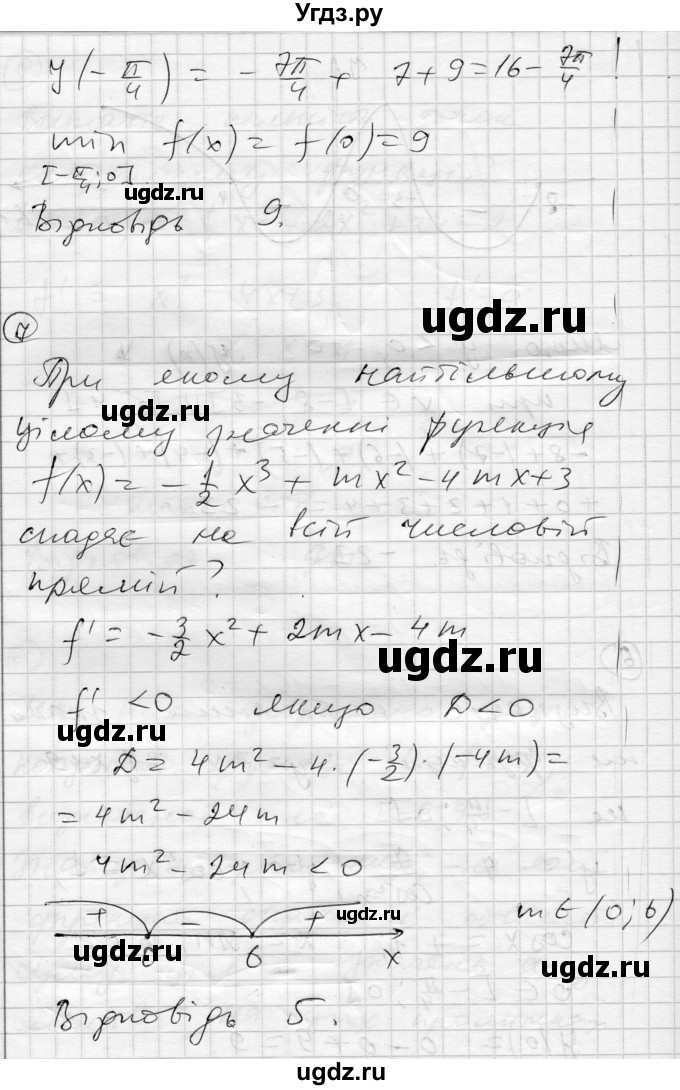 Угдз.ру
y(-π/4) = -7π/4 + 7+9=16-7π/4
min f(x) = f(0) = 9
[-π/4; 0]
ugdz.ru
Відповідь 9.
ugdz.ru
7
При якому найбільшому
ugdz.ru
цілому значенні функція
f(x) = -1/2 x³ + mx² - 4mx+3
спадає на всій числовій
прямій?
f' = -3/2 x² + 2mx - 4m
ugdz.ru
f' <0 якщо D<0
ugdz.ru
D = 4m² - 4·(-3/2)·(-4m) =
= 4m² - 24m
4m² - 24m <0
+ - + ugdz.ru m∈(0;6)
0 6 x
ugdz.ru
ugdz.ru
Відповідь 5.
ugdz.ru